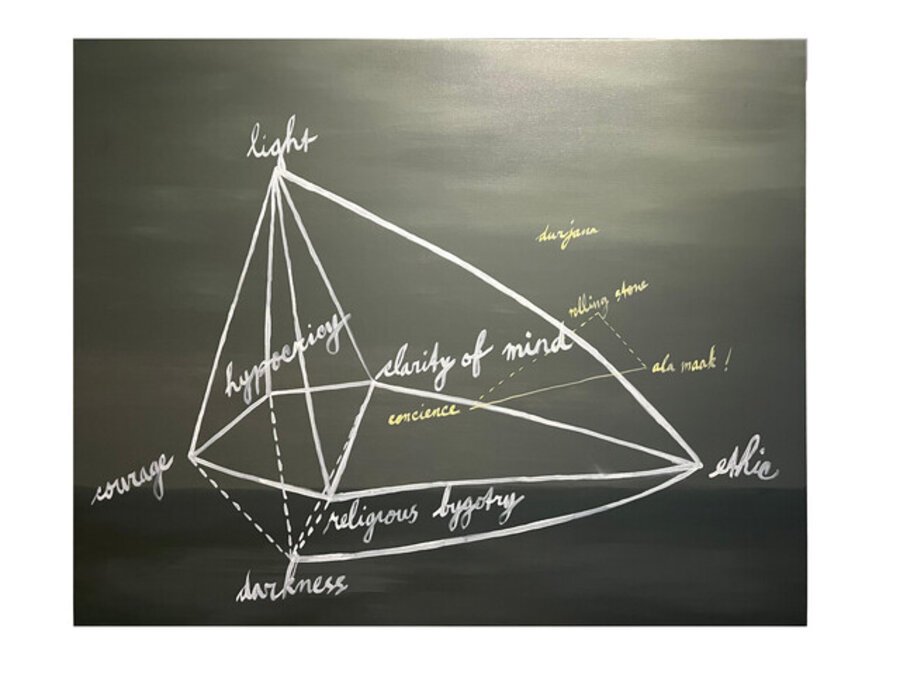 light
durjana
rolling stone
hypocricy
clarity of mind
ala maak !
concience
courage
ethic
religious bygotry
darkness